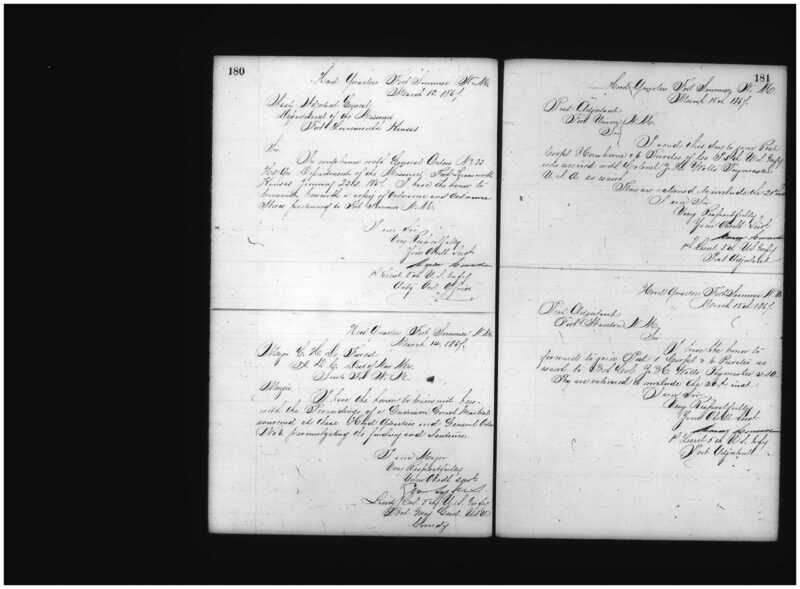 180
Head Quarters Fort Sumner N. M.
March 12, 1867.
General
Department of the Missouri
Fort Leavenworth Kansas
Sir
In compliance with General Orders No 33
Department of the Missouri Fort Leavenworth
Kansas January 22d 186 I have the honor to
herewith a copy of Ordnance and Ordnance
Stores pertaining to Fort Sumner N. M.
I am Sir
Very Respectfully
Your Obedt Servt
1st Lieut 5th U. S. Infty
Actg Ord. Officer
Head Quarters Fort Sumner N. M.
March 14, 1867.
Major C. H. De Forrest
A. A. A. G. Dist of New Mex.
Santa Fe N. M.
Major
I have the honor to transmit here-
with the Proceedings of a Garrison Court Martial
convened at these Head Quarters and General Order
promulgating the finding and Sentence.
I am Major
Very Respectfully
Your Obedt Servt
Lieut Col 5th U. S. Infty
Bvt Brig Genl U. S. A.
Comdg
181
Head Quarters Fort Sumner N. M.
March 15th 1867.
Post Adjutant
Fort Union N. M.
Sir
I send this day to your Post
Corpl & 6 Privates of Co 5th U. S. Infty
who arrived with Colonel Paymaster
U. S. A. as escort
They are rationed to include the
I am Sir
Very Respectfully
Your Obedt Servt
1st Lieut 5th U. S. Infty
Post Adjutant
Head Quarters Fort Sumner N. M.
March 15th 1867.
Post Adjutant
Fort Stanton N. M.
Sir
I have the honor to
forward to your Post 1 Corpl & 6 Privates as
escort to Bvt Col Paymaster U.S.A.
They are rationed to include the inst
I am Sir
Very Respectfully
Your Obt Servt
1st Lieut 5th U. S. Infty
Post Adjutant